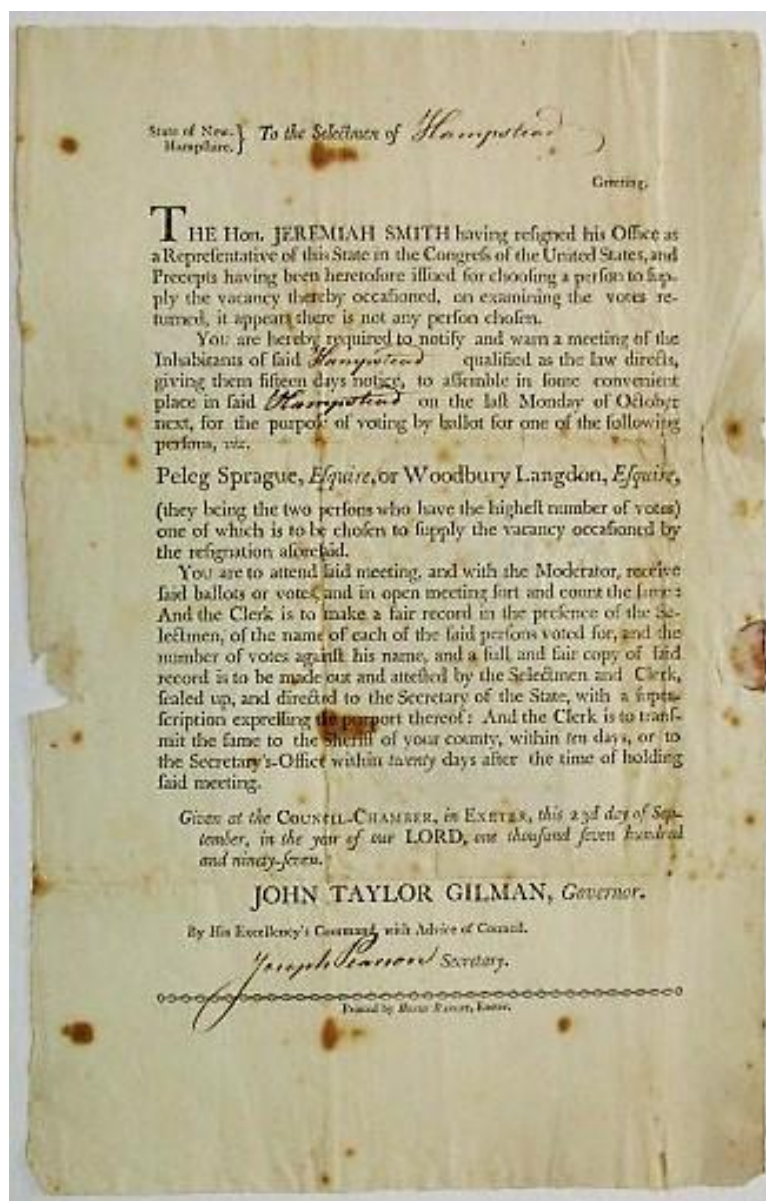 State of New-
Hampſhire. } To the Selectmen of Hampstead
Greeting.
THE Hon. JEREMIAH SMITH having reſigned his Office as
a Repreſentative of this State in the Congreſs of the United States, and
Precepts having been heretofore iſſued for chooſing a perſon to ſup-
ply the vacancy thereby occaſioned, on examining the votes re-
turned, it appears there is not any perſon choſen.
You are hereby required to notify and warn a meeting of the
Inhabitants of ſaid Hampstead qualified as the law directs,
giving them fifteen days notice, to aſſemble in ſome convenient
place in ſaid Hampstead on the laſt Monday of October
next, for the purpoſe of voting by ballot for one of the following
perſons, viz.
Peleg Sprague, Eſquire, or Woodbury Langdon, Eſquire,
(they being the two perſons who have the higheſt number of votes)
one of which is to be choſen to ſupply the vacancy occaſioned by
the reſignation aforeſaid.
You are to attend ſaid meeting, and with the Moderator, receive
ſaid ballots or votes, and in open meeting ſort and count the ſame :
And the Clerk is to make a fair record in the preſence of the Se-
lectmen, of the name of each of the ſaid perſons voted for, and the
number of votes againſt his name, and a full and fair copy of ſaid
record is to be made out and atteſted by the Selectmen and Clerk,
ſealed up, and directed to the Secretary of the State, with a ſuper-
ſcription expreſſing the purport thereof : And the Clerk is to tranſ-
mit the ſame to the Sheriff of your county, within ten days, or to
the Secretary's-Office within twenty days after the time of holding
ſaid meeting.
Given at the COUNCIL-CHAMBER, in EXETER, this 23d day of Sep-
tember, in the year of our LORD, one thouſand ſeven hundred
and ninety-ſeven.
JOHN TAYLOR GILMAN, Governor.
By His Excellency's Command, with Advice of Council.
Joseph Pearson Secretary.
Printed by Exeter.